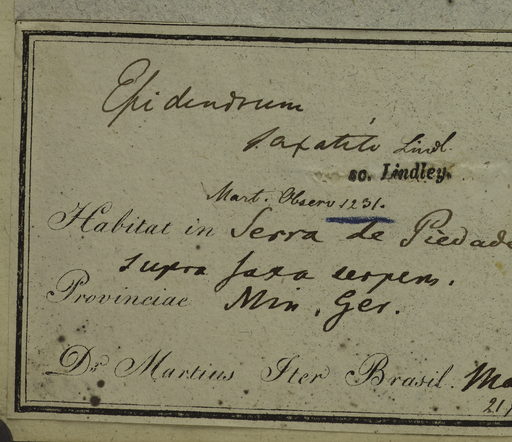 Epidendrum
saxatile Lindl.
sc. Lindley.
Mart. Observ 1231.
Habitat in Serra de Piedade
supra saxa serpens.
Provinciae Min. Ger.
Dr. Martius Iter Brasil.